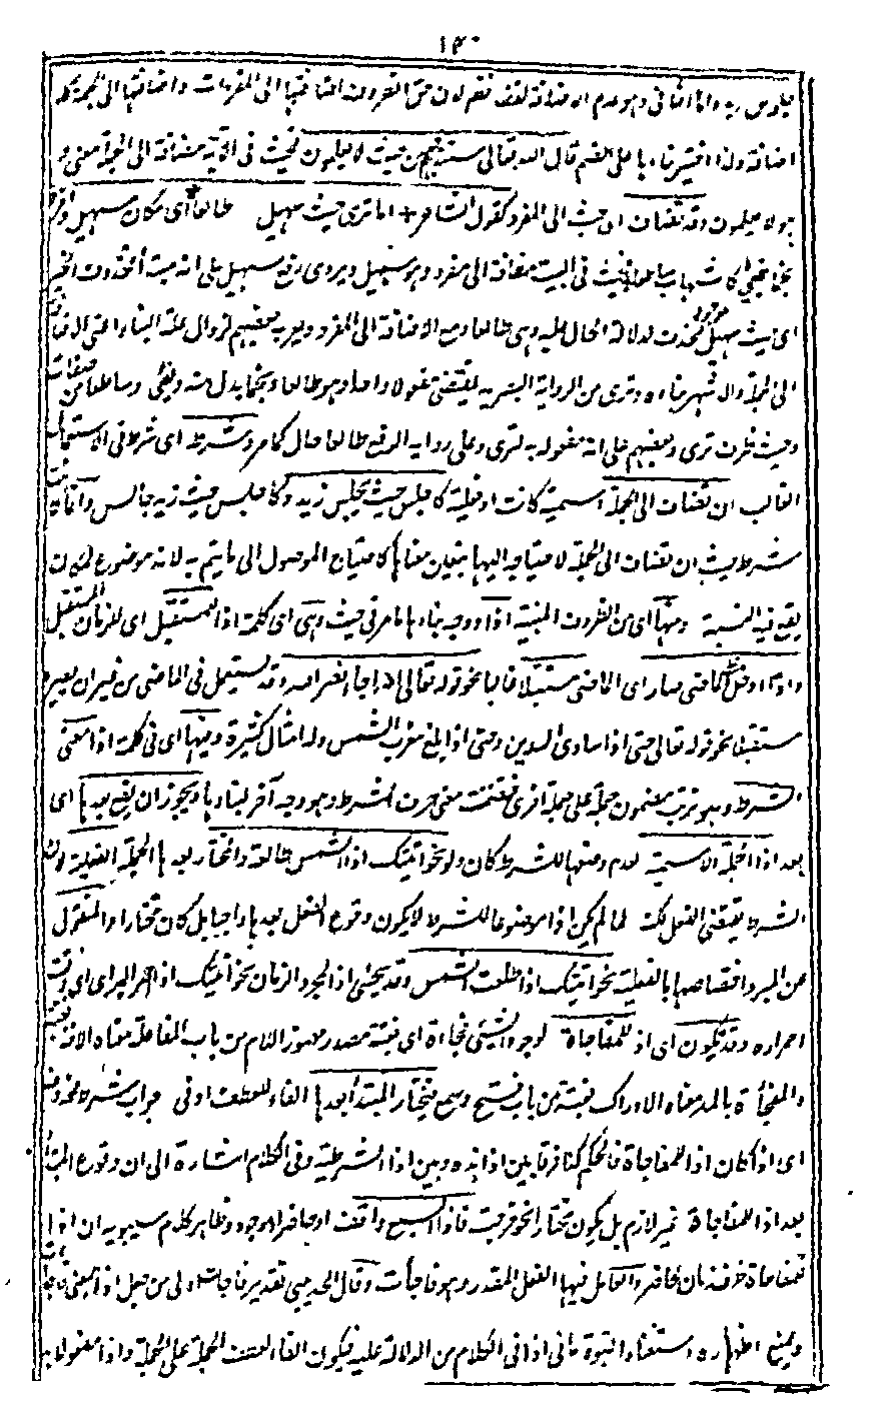 ١٣٠
وهو عدم الاضافة لفظا فنعم لان حق الظروف اضافتها الى المفردات واضافتها الى الجملة كلا
اضافة ولذا اختير بناءها على الضم قال الله تعالى سنستدرجهم من حيث لا يعلمون فحيث فى الآية مضافة الى الجملة معنى و
هو لا يعلمون وقد تضاف اى حيث الى المفرد كقول الشاعر اما ترى حيث سهيل طالعا اى مكان سهيل
نجما يضئ كالشهاب ساطعا فحيث فى البيت مضافة الى مفرد وهو سهيل ويروى رفع سهيل على انه مبتدأ محذوف الخبر
اى حيث سهيل موجود فحذف لدلالة الحال عليه وهى طالعا ومع الاضافة الى المفرد ويعرب بعضهم لزوال علة البناء اعنى الاضافة
الى الجملة والاشهر بناءه وترى من الرواية البصرية يقتضى مفعولا واحدا وهو طالعا ونجما بدل منه ويضئ وساطعا من صفات
وحيث ظرف ترى وبعضهم على انه مفعول به لترى وعلى رواية الرفع طالعا حال كما مر وشرطه اى شرطه فى الاستعمال
الغالب ان تضاف الى الجملة اسمية كانت او فعلية كاجلس حيث يجلس زيد وكاجلس حيث زيد جالس وانما كان
شرط حيث ان تضاف الى الجملة لاحتياجه اليها بتعين معناها كاحتياج الموصول الى ما يتم به لانه موضوع لمكان
يقع فيه النسبة ومنها اى من الظروف المبنية اذا ووجه بناءها ما مر فى حيث وهى اى كلمة اذا للمستقبل اى للزمان المستقبل
واذا دخل على الماضى صار اى الماضى مستقبلا غالبا نحو قوله تعالى اذا جاء نصر الله وقد يستعمل فى الماضى من غير ان يصير
مستقبلا نحو قوله تعالى حتى اذا ساوى بين الصدفين وحتى اذا بلغ مغرب الشمس وله امثال كثيرة وفيها اى فى كلمة اذا معنى
الشرط وهو ترتب مضمون جملة على جملة اخرى فتضمنت معنى حرف الشرط وهو وجه آخر لبناءها ويجوز ان يقع بعدها اى
بعد اذا الجملة الاسمية لعدم وضعها للشرط كان ولو نحو اتيتك اذا الشمس طالعة والمختار بعدها الجملة الفعلية لان
الشرط يقتضى الفعل لكن لما لم يكن اذا موضوعا للشرط لا يكون وقوع الفعل بعدها واجبا بل كان مختارا والمنقول
عن المبرد اختصاصها بالفعلية نحو اتيتك اذا طلعت الشمس وقد يجئ اذا لمجرد الزمان نحو آتيتك اذا احمر البسر اى وقت
احمراره وقد تكون اى اذا للمفاجاة لوجود الشئ فجاءة اى بغتة مصدر مهموز اللام من باب المفاعلة معناه الاخذ بغتة
والفجأة بالمد معناه الادراك بغتة من باب فتح وسمع فيختار المبتدأ بعدها الفاء للعطف او فى جواب شرط محذوف
اى اذا كان اذا للمفاجاة فالحكم كذا فرقا بين اذا هذه وبين اذا الشرطية وفى الكلام اشارة الى ان وقوع المبتدأ
بعد اذا للمفاجاة غير لازم بل يكون مختارا نحو خرجت فاذا السبع واقف او حاضر او موجود وظاهر كلام سيبويه ان اذا
للمفاجاة ظرف زمان لحاضر والعامل فيها الفعل المقدر وهو فاجأت وقال الحديثى تقدير فاجأت اولى من جعل اذا بمعنى فاجأت
ويمنع اظهاره استغناء بقوة ما فى اذا فى الكلام من الدلالة عليه فيكون الفاء لعطف الجملة على الجملة واذا مفعولا به